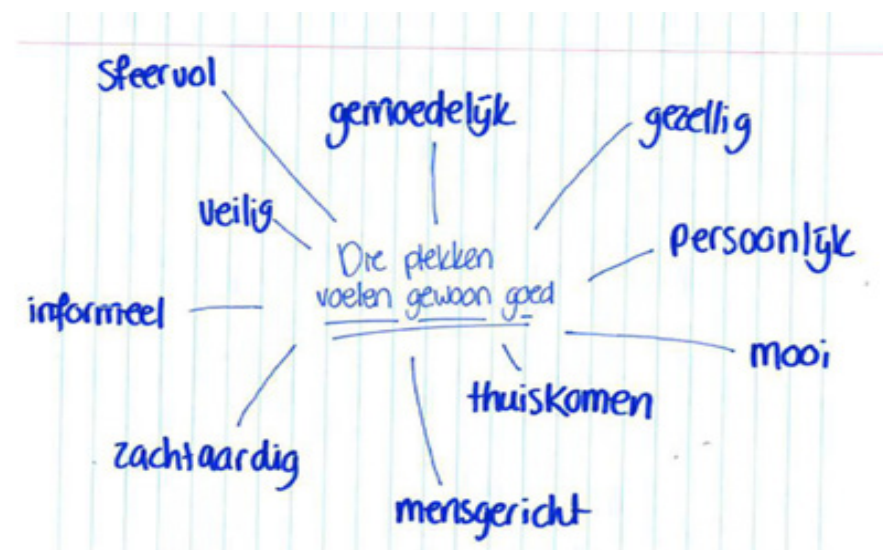 Sfeervol
gemoedelijk
gezellig
veilig
persoonlijk
Die plekken
voelen gewoon goed
informeel
mooi
thuiskomen
zachtaardig
mensgericht